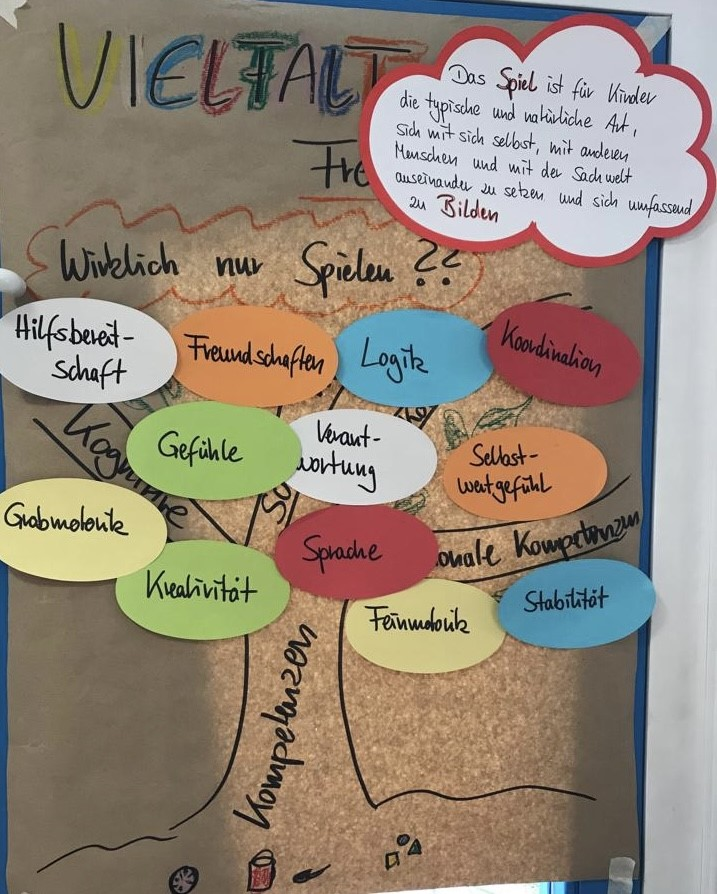 VIELFALT
Das Spiel ist für Kinder
die typische und natürliche Art,
sich mit sich selbst, mit anderen
Menschen und mit der Sachwelt
auseinander zu setzen und sich umfassend
zu Bilden
Fre
Wirklich nur Spielen ??
Hilfsbereit-
schaft
Freundschaften
Logik
Koordination
Kognitive
Gefühle
Verant-
wortung
Selbst-
wertgefühl
Grobmotorik
Sprache
onale Kompetenzen
Kreativität
Feinmotorik
Stabilität
Kompetenzen